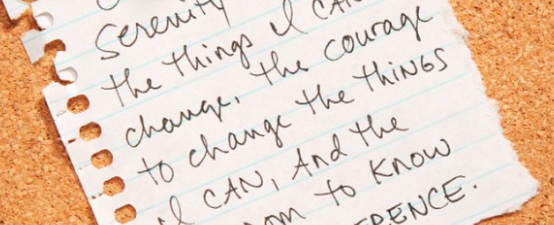 Serenity
the things I CAN
change, the courage
to change the THINGS
I CAN, And the
to KNOW